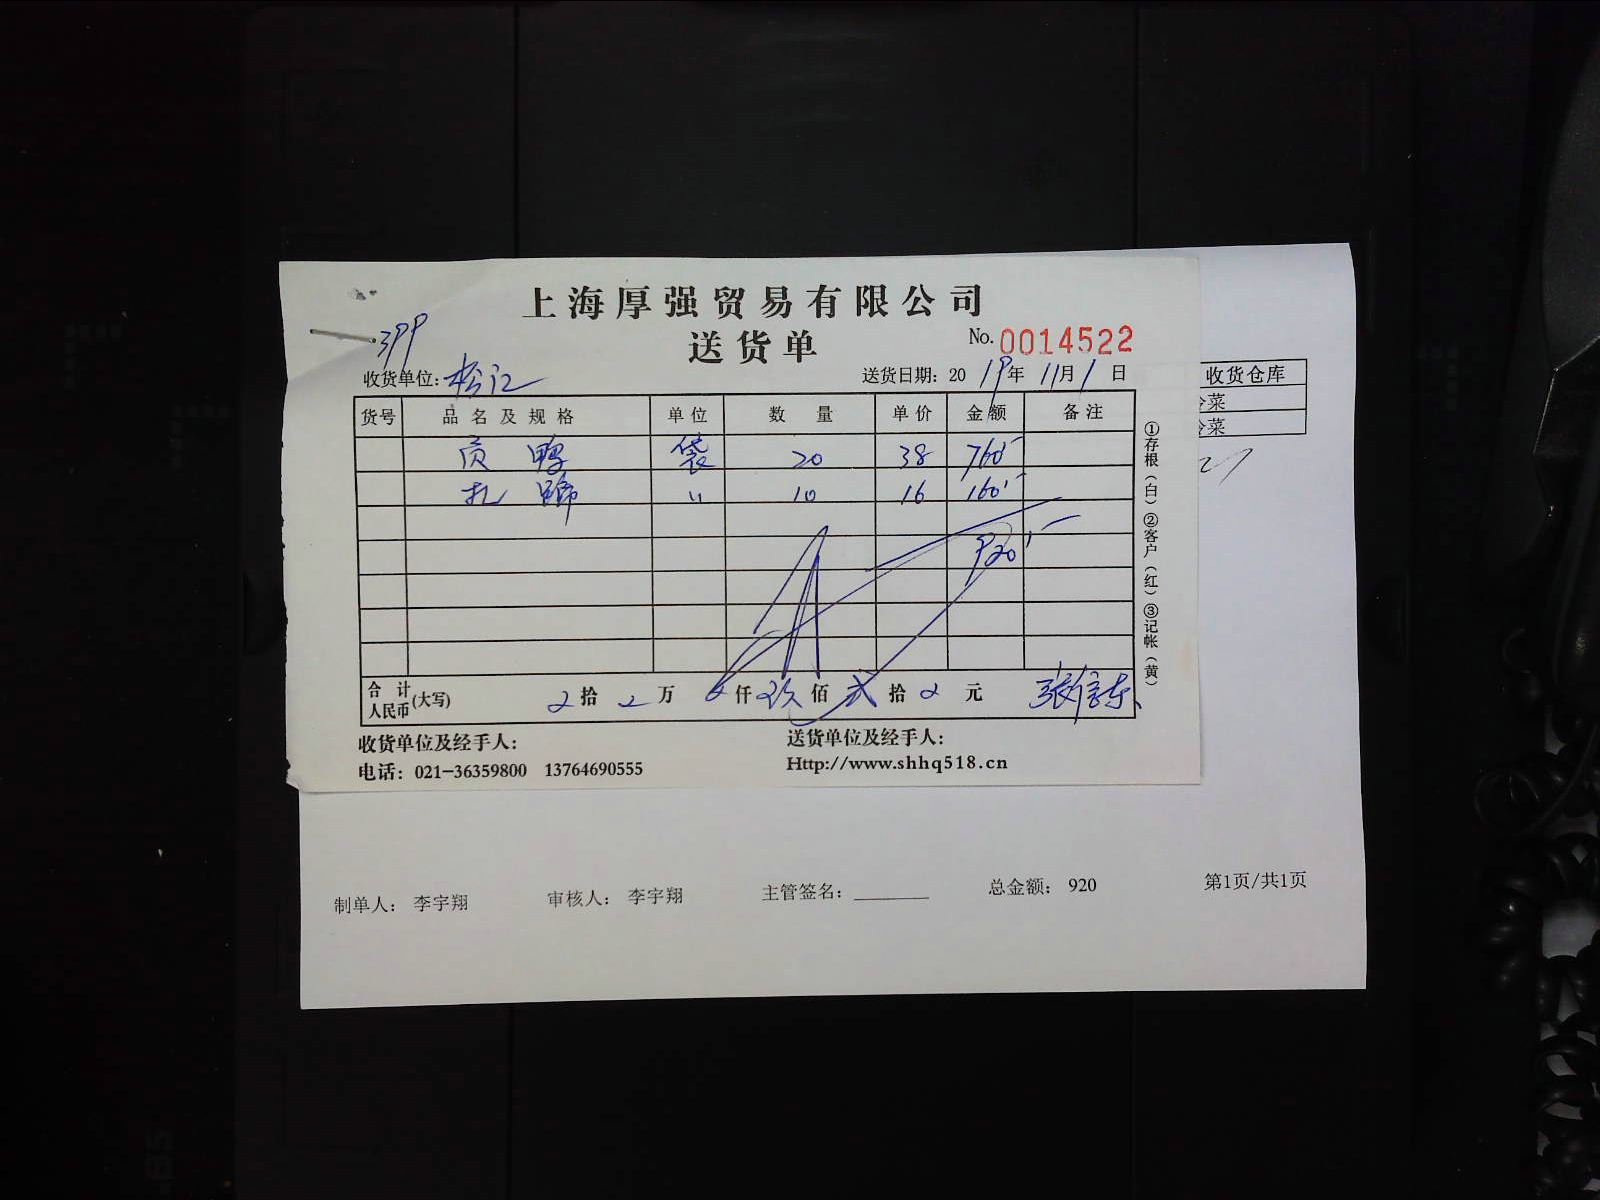 上海厚强贸易有限公司
送货单
No. 0014522
399
收货单位: 松江
送货日期: 2019年11月1日
收货仓库
货号 品名及规格 单位 数量 单价 金额 备注
冷菜
冷菜
袋 20 38 760
扎蹄 〃 10 16 160
920
①存根(白)②客户(红)③记帐(黄)
合计人民币(大写) 拾 万 仟 玖佰 贰拾 元
收货单位及经手人:
送货单位及经手人:
电话: 021-36359800 13764690555
Http://www.shhq518.cn
制单人: 李宇翔 审核人: 李宇翔 主管签名: 总金额: 920 第1页/共1页